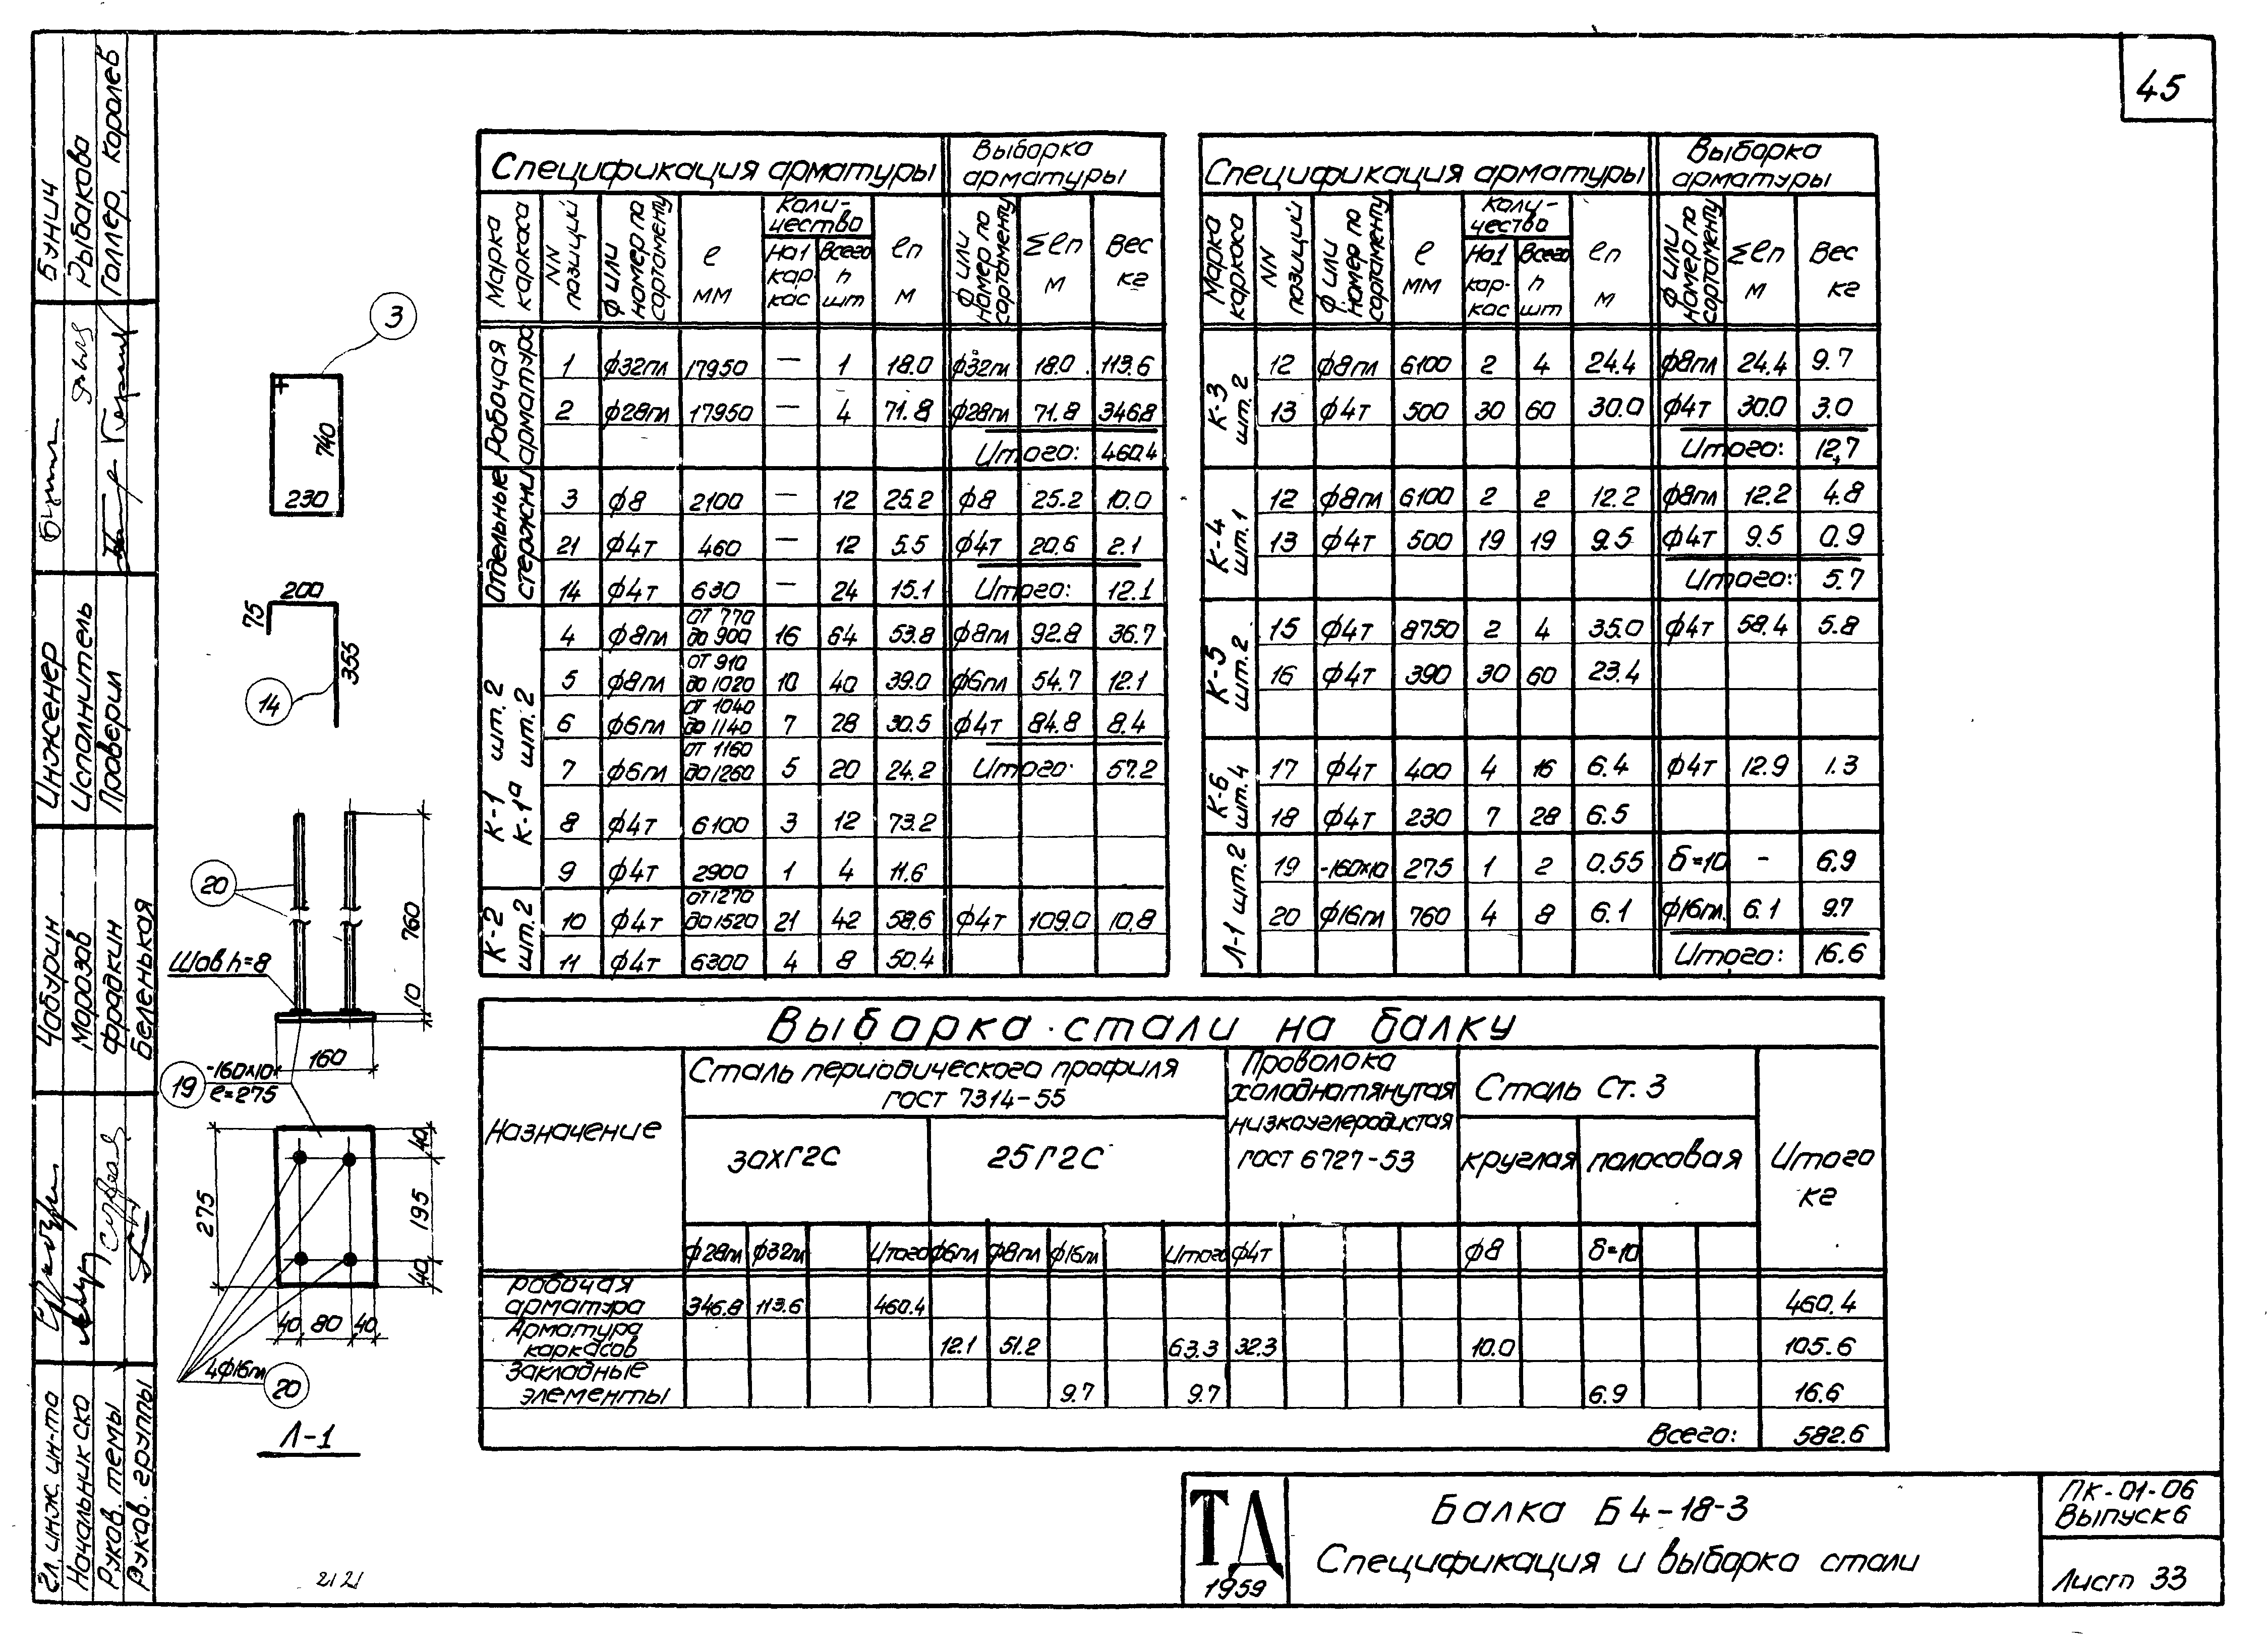 45
Спецификация арматуры
Выборка арматуры
Марка каркаса
NN позиций
ф или номер по сортаменту
ℓ мм
Количество
На 1 каркас
Всего n шт
ℓп м
ф или номер по сортаменту
Σℓп м
Вес кг
Рабочая арматура
1 ф32пл 17950 — 1 18.0 ф32пл 18.0 113.6
2 ф28пл 17950 — 4 71.8 ф28пл 71.8 346.8
Итого: 460.4
Отдельные стержни
3 ф8 2100 — 12 25.2 ф8 25.2 10.0
21 ф4т 460 — 12 5.5 ф4т 20.6 2.1
14 ф4т 630 — 24 15.1 Итого: 12.1
К-1 шт. 2
К-1а шт. 2
4 ф8пл от 770 до 900 16 64 53.8 ф8пл 92.8 36.7
5 ф8пл от 910 до 1020 10 40 39.0 ф6пл 54.7 12.1
6 ф6пл от 1040 до 1140 7 28 30.5 ф4т 84.8 8.4
7 ф6пл от 1160 до 1260 5 20 24.2 Итого: 57.2
8 ф4т 6100 3 12 73.2
9 ф4т 2900 1 4 11.6
К-2 шт. 2
10 ф4т от 1270 до 1520 21 42 58.6 ф4т 109.0 10.8
11 ф4т 6300 4 8 50.4
Спецификация арматуры
Выборка арматуры
Марка каркаса
NN позиций
ф или номер по сортаменту
ℓ мм
Количество
На 1 каркас
Всего n шт
ℓп м
ф или номер по сортаменту
Σℓп м
Вес кг
К-3 шт. 2
12 ф8пл 6100 2 4 24.4 ф8пл 24.4 9.7
13 ф4т 500 30 60 30.0 ф4т 30.0 3.0
Итого: 12,7
К-4 шт. 1
12 ф8пл 6100 2 2 12.2 ф8пл 12.2 4.8
13 ф4т 500 19 19 9.5 ф4т 9.5 0.9
Итого: 5.7
К-5 шт. 2
15 ф4т 8750 2 4 35.0 ф4т 58.4 5.8
16 ф4т 390 30 60 23.4
К-6 шт. 4
17 ф4т 400 4 16 6.4 ф4т 12.9 1.3
18 ф4т 230 7 28 6.5
Л-1 шт. 2
19 -160х10 275 1 2 0.55 δ=10 - 6.9
20 ф16пл 760 4 8 6.1 ф16пл. 6.1 9.7
Итого: 16.6
Выборка стали на балку
Назначение
Сталь периодического профиля
ГОСТ 7314-55
30хГ2С
25Г2С
Проволока
холоднотянутая
низкоуглеродистая
ГОСТ 6727-53
Сталь Ст. 3
круглая
полосовая
Итого
кг
ф28пл ф32пл Итого ф6пл ф8пл ф16пл Итого ф4т ф8 δ=10
Рабочая арматура 346.8 113.6 460.4 460.4
Арматура каркасов 12.1 51.2 63.3 32.3 10.0 105.6
Закладные элементы 9.7 9.7 6.9 16.6
Всего: 582.6
ТД
1959
Балка Б4-18-3
Спецификация и выборка стали
ПК-01-06
Выпуск 6
Лист 33
3
740
230
200
75
355
14
20
760
Шов h=8
10
160
19
-160х10
ℓ=275
275
40
195
40
40 80 40
4ф16пл
20
Л-1
2121
Бунич
Рыбакова
Галлер, Королев
Инженер
Исполнитель
Проверил
Чабурин
Морозов
Фрадкин
Беленькая
Гл. инж. ин-та
Начальник СКО
Руков. темы
Руков. группы